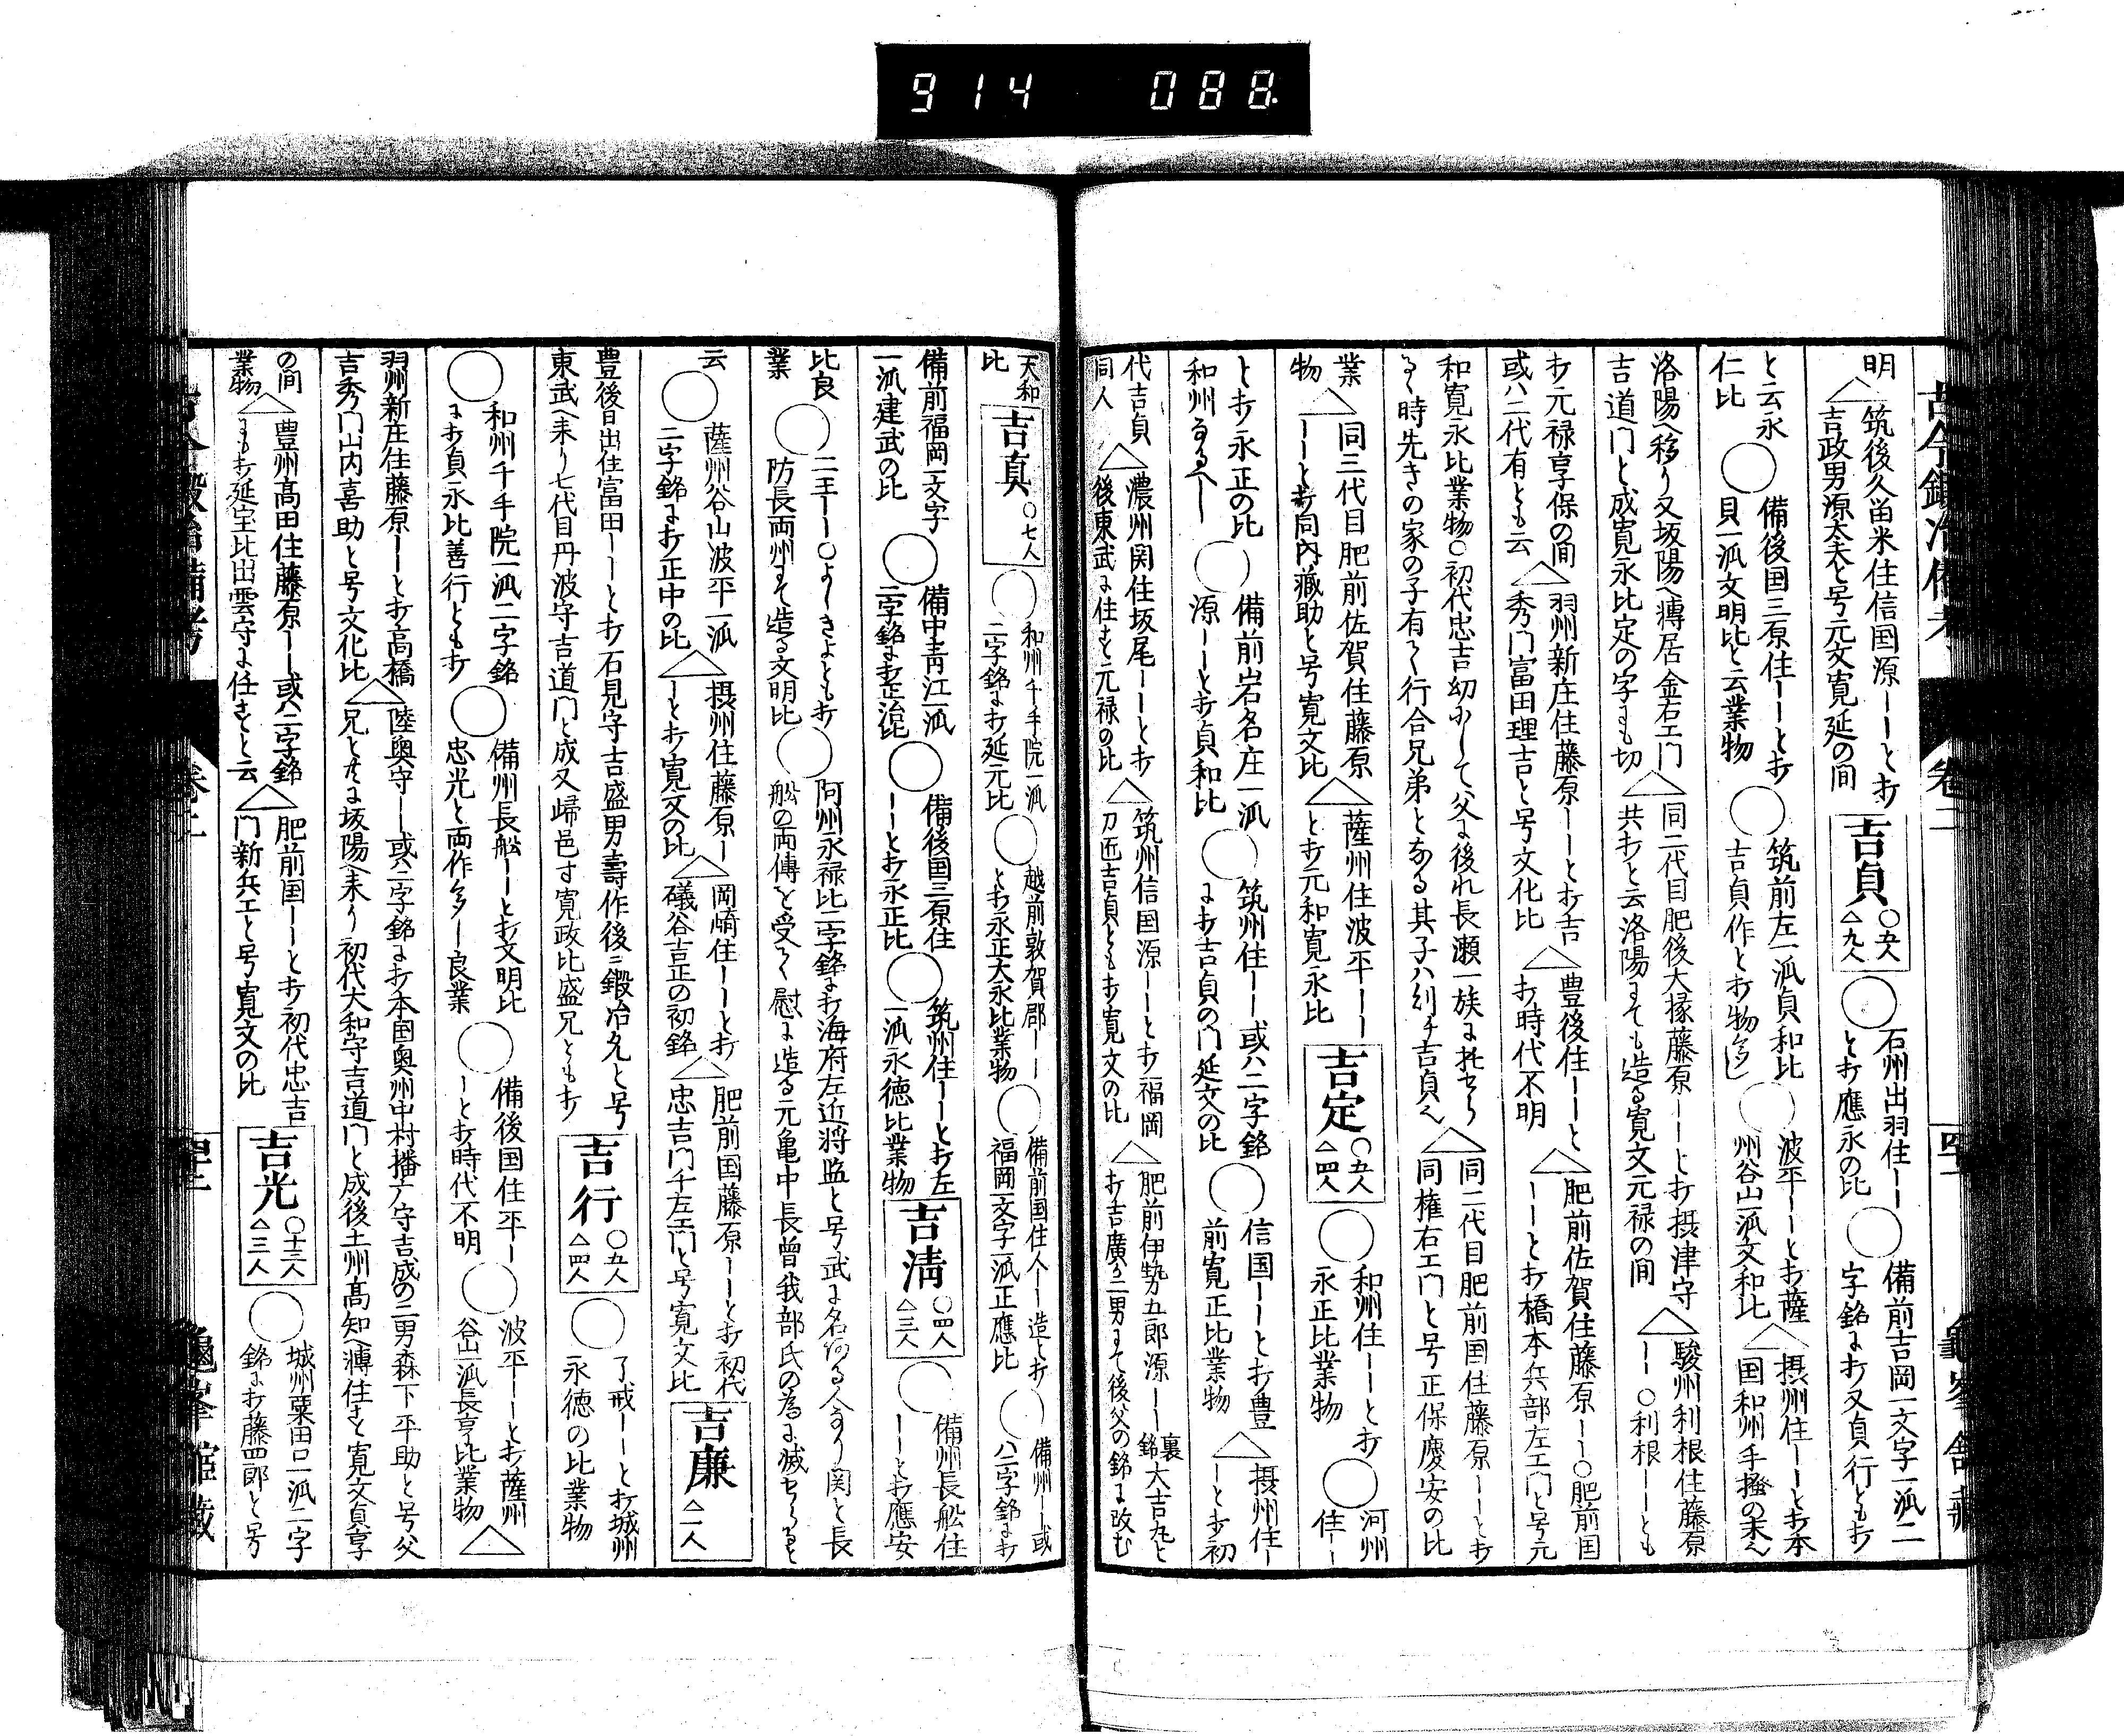 914 088
古今鍛冶備考 巻二
明△筑後久留米住信国源ーーと打
吉政男源太夫と号元文寛延の間
吉貞 ○六人 △九人
○石州出羽住ーー
と打應永の比
○備前吉岡一文字一派二
字銘に打又貞行とも打
と云永
仁比
○備後国三原住ーーと打
貝一派文明比と云業物
○筑前左一派貞和比
吉貞作と打物多し
○波平ーーと打薩
州谷山一派文和比
△摂州住ーーと打本
国和州手掻の末へ
洛陽へ移り又坂陽へ轉居金右エ門
吉道門と成寛永比定の字も切
△同二代目肥後大掾藤原ーーと打摂津守
共打と云洛陽にても造る寛文元禄の間
△駿州利根住藤原
ーー○利根ーーとも
打元禄享保の間
或ハ二代有とも云
△羽州新庄住藤原ーーと打吉
秀門富田理吉と号文化比
△豊後住ーーと
打時代不明
△肥前佐賀住藤原ーー○肥前国
ーーと打橋本兵部左エ門と号元
和寛永比業物○初代忠吉幼少して父に後れ長瀬一族に托せら
るゝ時先きの家の子有て行合兄弟となる其子ハ則チ吉貞へ
△同二代目肥前国住藤原ーーと打
同権右エ門と号正保慶安の比
業
物
△同三代目肥前佐賀住藤原
ーーと打同内蔵助と号寛文比
△薩州住波平ーー
と打元和寛永比
吉定 ○五人 △四人
○和州住ーーと打
永正比業物
○河州
住ーー
と打永正の比
和州なるへし
○備前岩名庄一派
源ーーと打貞和比
○筑州住ーー或ハ二字銘
に打吉貞の門延文の比
○信国ーーと打豊
前寛正比業物
△摂州住ー
ーと打初
代吉貞
同人
△濃州関住坂尾ーーと打
後東武に住すと元禄の比
△筑州信国源ーーと打福岡
刀匠吉貞とも打寛文の比
△肥前伊勢五郎源ーー裏銘大吉丸と
打吉廣が二男にて後父の銘に改む
天和
比
吉真 ○七人
○和州千手院一派
二字銘に打延元比
○越前敦賀郡ーー
と打永正大永比業物
○備前国住人ーー造と打
福岡一文字一派正應比
○備州ーー或
ハ二字銘に打
備前福岡一文字
一派建武の比
○備中青江一派
二字銘に打正治比
○備後国三原住
ーーと打永正比
○筑州住ーーと打左
一派永徳比業物
吉清 ○四人 △三人
○備州長船住
ーーと打應安
比良
業
○二王ーー○よしきよとも打
防長両州にて造る文明比
○阿州永禄比二字銘に打海府左近将監と号武に名有る人なり関と長
船の両傳を受く慰に造る元亀中長曽我部氏の為に滅せらると
云○薩州谷山波平一派
二字銘に打正中の比
△摂州住藤原ー
ーと打寛文の比
△岡崎住ーーと打
礒谷吉正の初銘
△肥前国藤原ーーと打初代
忠吉門千左エ門と号寛文比
吉廉 △二人
豊後日出住富田ーーと打石見守吉盛男壽作後ニ鍛冶允と号
東武へ来り七代目丹波守吉道門と成又歸邑す寛政比盛兄とも打
吉行 ○五人 △四人
○了戒ーーと打城州
永徳の比業物
○和州千手院一派二字銘
に打貞永比善行とも打
○備州長船ーーと打文明比
忠光と両作多し良業
○備後国住平ー
ーと打時代不明
○波平ーーと打薩州
谷山一派長享比業物
△
羽州新庄住藤原ーーと打高橋
吉秀門山内喜助と号文化比
△陸奥守ーー或ハ二字銘に打本国奥州中村播广守吉成の二男森下平助と号父
兄とともに坂陽へ来り初代大和守吉道門と成後土州高知へ轉住すと寛文貞享
の間
業物
△豊州高田住藤原ーー或ハ二字銘
にも打延宝比出雲守に任すと云
△肥前国ーーと打初代忠吉
門新兵エと号寛文の比
吉光 ○十三人 △三人
○城州粟田口一派二字
銘に打藤四郎と号